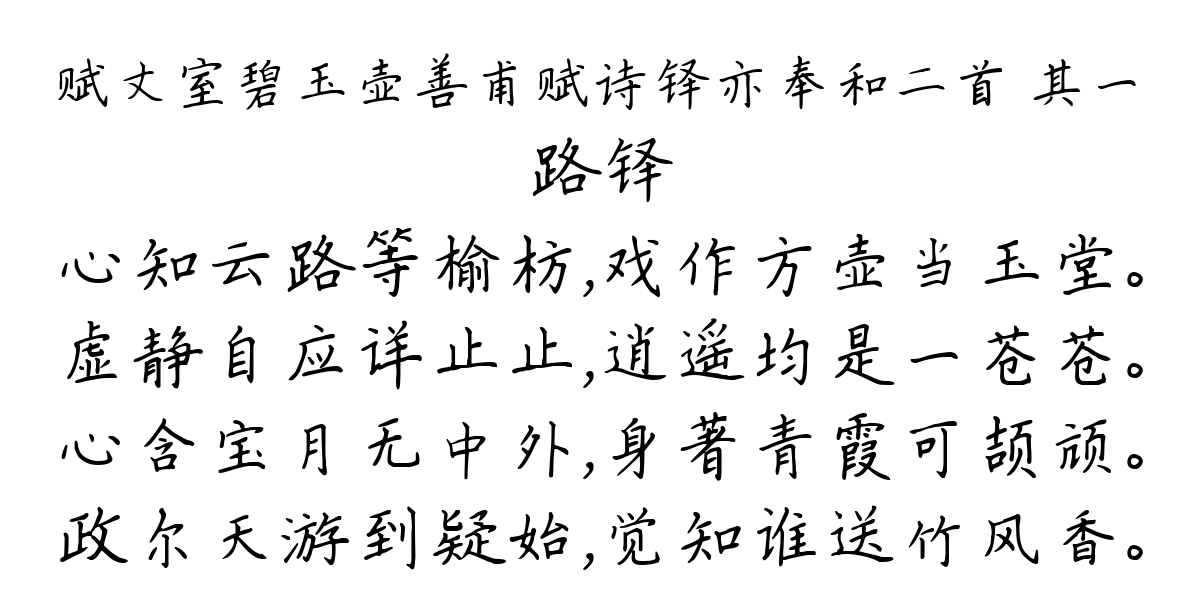 赋丈室碧玉壶善甫赋诗铎亦奉和二首 其一
路铎
心知云路等榆枋,戏作方壶当玉堂。
虚静自应详止止,逍遥均是一苍苍。
心含宝月无中外,身著青霞可颉颃。
政尔天游到疑始,觉知谁送竹风香。